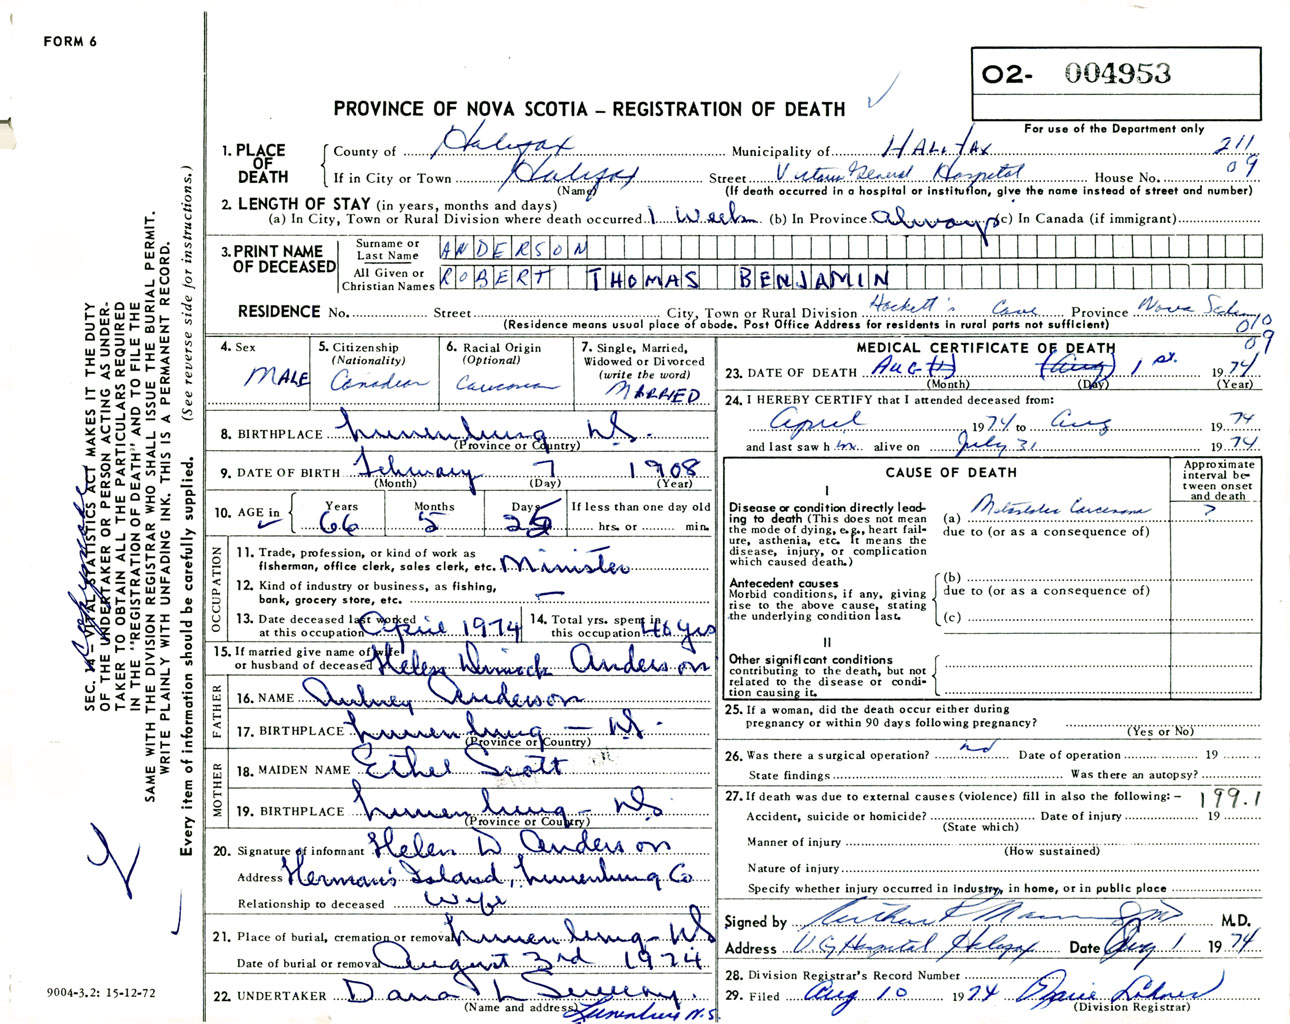 FORM 6
O2- 004953
For use of the Department only
PROVINCE OF NOVA SCOTIA – REGISTRATION OF DEATH
1. PLACE OF DEATH
County of Halifax Municipality of HALIFAX 211
If in City or Town Halifax Street Victoria General Hospital House No. 09
(Name) (If death occurred in a hospital or institution, give the name instead of street and number)
2. LENGTH OF STAY (in years, months and days)
(a) In City, Town or Rural Division where death occurred 1 week (b) In Province Always (c) In Canada (if immigrant)
3. PRINT NAME OF DECEASED
Surname or Last Name ANDERSON
All Given or Christian Names ROBERT THOMAS BENJAMIN
RESIDENCE No. Street City, Town or Rural Division Hackett's Cove Province Nova Scotia
(Residence means usual place of abode. Post Office Address for residents in rural parts not sufficient)
010
09
4. Sex MALE
5. Citizenship (Nationality) Canadian
6. Racial Origin (Optional) Caucasian
7. Single, Married, Widowed or Divorced (write the word) MARRIED
8. BIRTHPLACE Lunenburg N.S.
(Province or Country)
9. DATE OF BIRTH February 7 1908
(Month) (Day) (Year)
10. AGE in Years 66 Months 5 Days 25 If less than one day old hrs. or min.
OCCUPATION
11. Trade, profession, or kind of work as fisherman, office clerk, sales clerk, etc. Minister
12. Kind of industry or business, as fishing, bank, grocery store, etc. —
13. Date deceased last worked at this occupation April 1974
14. Total yrs. spent in this occupation 46 yrs
15. If married give name of wife or husband of deceased Helen Anderson
FATHER
16. NAME Aubrey Anderson
17. BIRTHPLACE Lunenburg – N.S.
(Province or Country)
MOTHER
18. MAIDEN NAME Ethel Scott
19. BIRTHPLACE Lunenburg – N.S
(Province or Country)
20. Signature of informant Helen D Anderson
Address Herman's Island, Lunenburg Co
Relationship to deceased Wife
21. Place of burial, cremation or removal Lunenburg – N.S
Date of burial or removal August 3rd 1974
22. UNDERTAKER Dana L Sweeny.
(Name and address) Lunenburg N.S.
MEDICAL CERTIFICATE OF DEATH
23. DATE OF DEATH Aug 1 st. 1974
(Month) (Day) (Year)
24. I HEREBY CERTIFY that I attended deceased from:
April 1974 to Aug 1974
and last saw h im alive on July 31 1974
CAUSE OF DEATH
Approximate interval between onset and death
I
Disease or condition directly leading to death (This does not mean the mode of dying, e.g., heart failure, asthenia, etc. It means the disease, injury, or complication which caused death.)
(a) Metastatic Carcinoma ?
due to (or as a consequence of)
Antecedent causes
Morbid conditions, if any, giving rise to the above cause, stating the underlying condition last.
(b)
due to (or as a consequence of)
(c)
II
Other significant conditions
contributing to the death, but not related to the disease or condition causing it.
25. If a woman, did the death occur either during pregnancy or within 90 days following pregnancy?
(Yes or No)
26. Was there a surgical operation? no Date of operation 19
State findings Was there an autopsy?
27. If death was due to external causes (violence) fill in also the following: – 199.1
Accident, suicide or homicide? Date of injury 19
(State which)
Manner of injury
(How sustained)
Nature of injury
Specify whether injury occurred in industry, in home, or in public place
Signed by Arthur M.D.
Address V.G. Hospital Halifax Date Aug 1 1974
28. Division Registrar's Record Number
29. Filed Aug 10 1974
(Division Registrar)
SEC. 14 – VITAL STATISTICS ACT MAKES IT THE DUTY
OF THE UNDERTAKER OR PERSON ACTING AS UNDER-
TAKER TO OBTAIN ALL THE PARTICULARS REQUIRED
IN THE "REGISTRATION OF DEATH" AND TO FILE THE
SAME WITH THE DIVISION REGISTRAR WHO SHALL ISSUE THE BURIAL PERMIT.
WRITE PLAINLY WITH UNFADING INK. THIS IS A PERMANENT RECORD.
Every item of information should be carefully supplied. (See reverse side for instructions.)
9004-3.2: 15-12-72